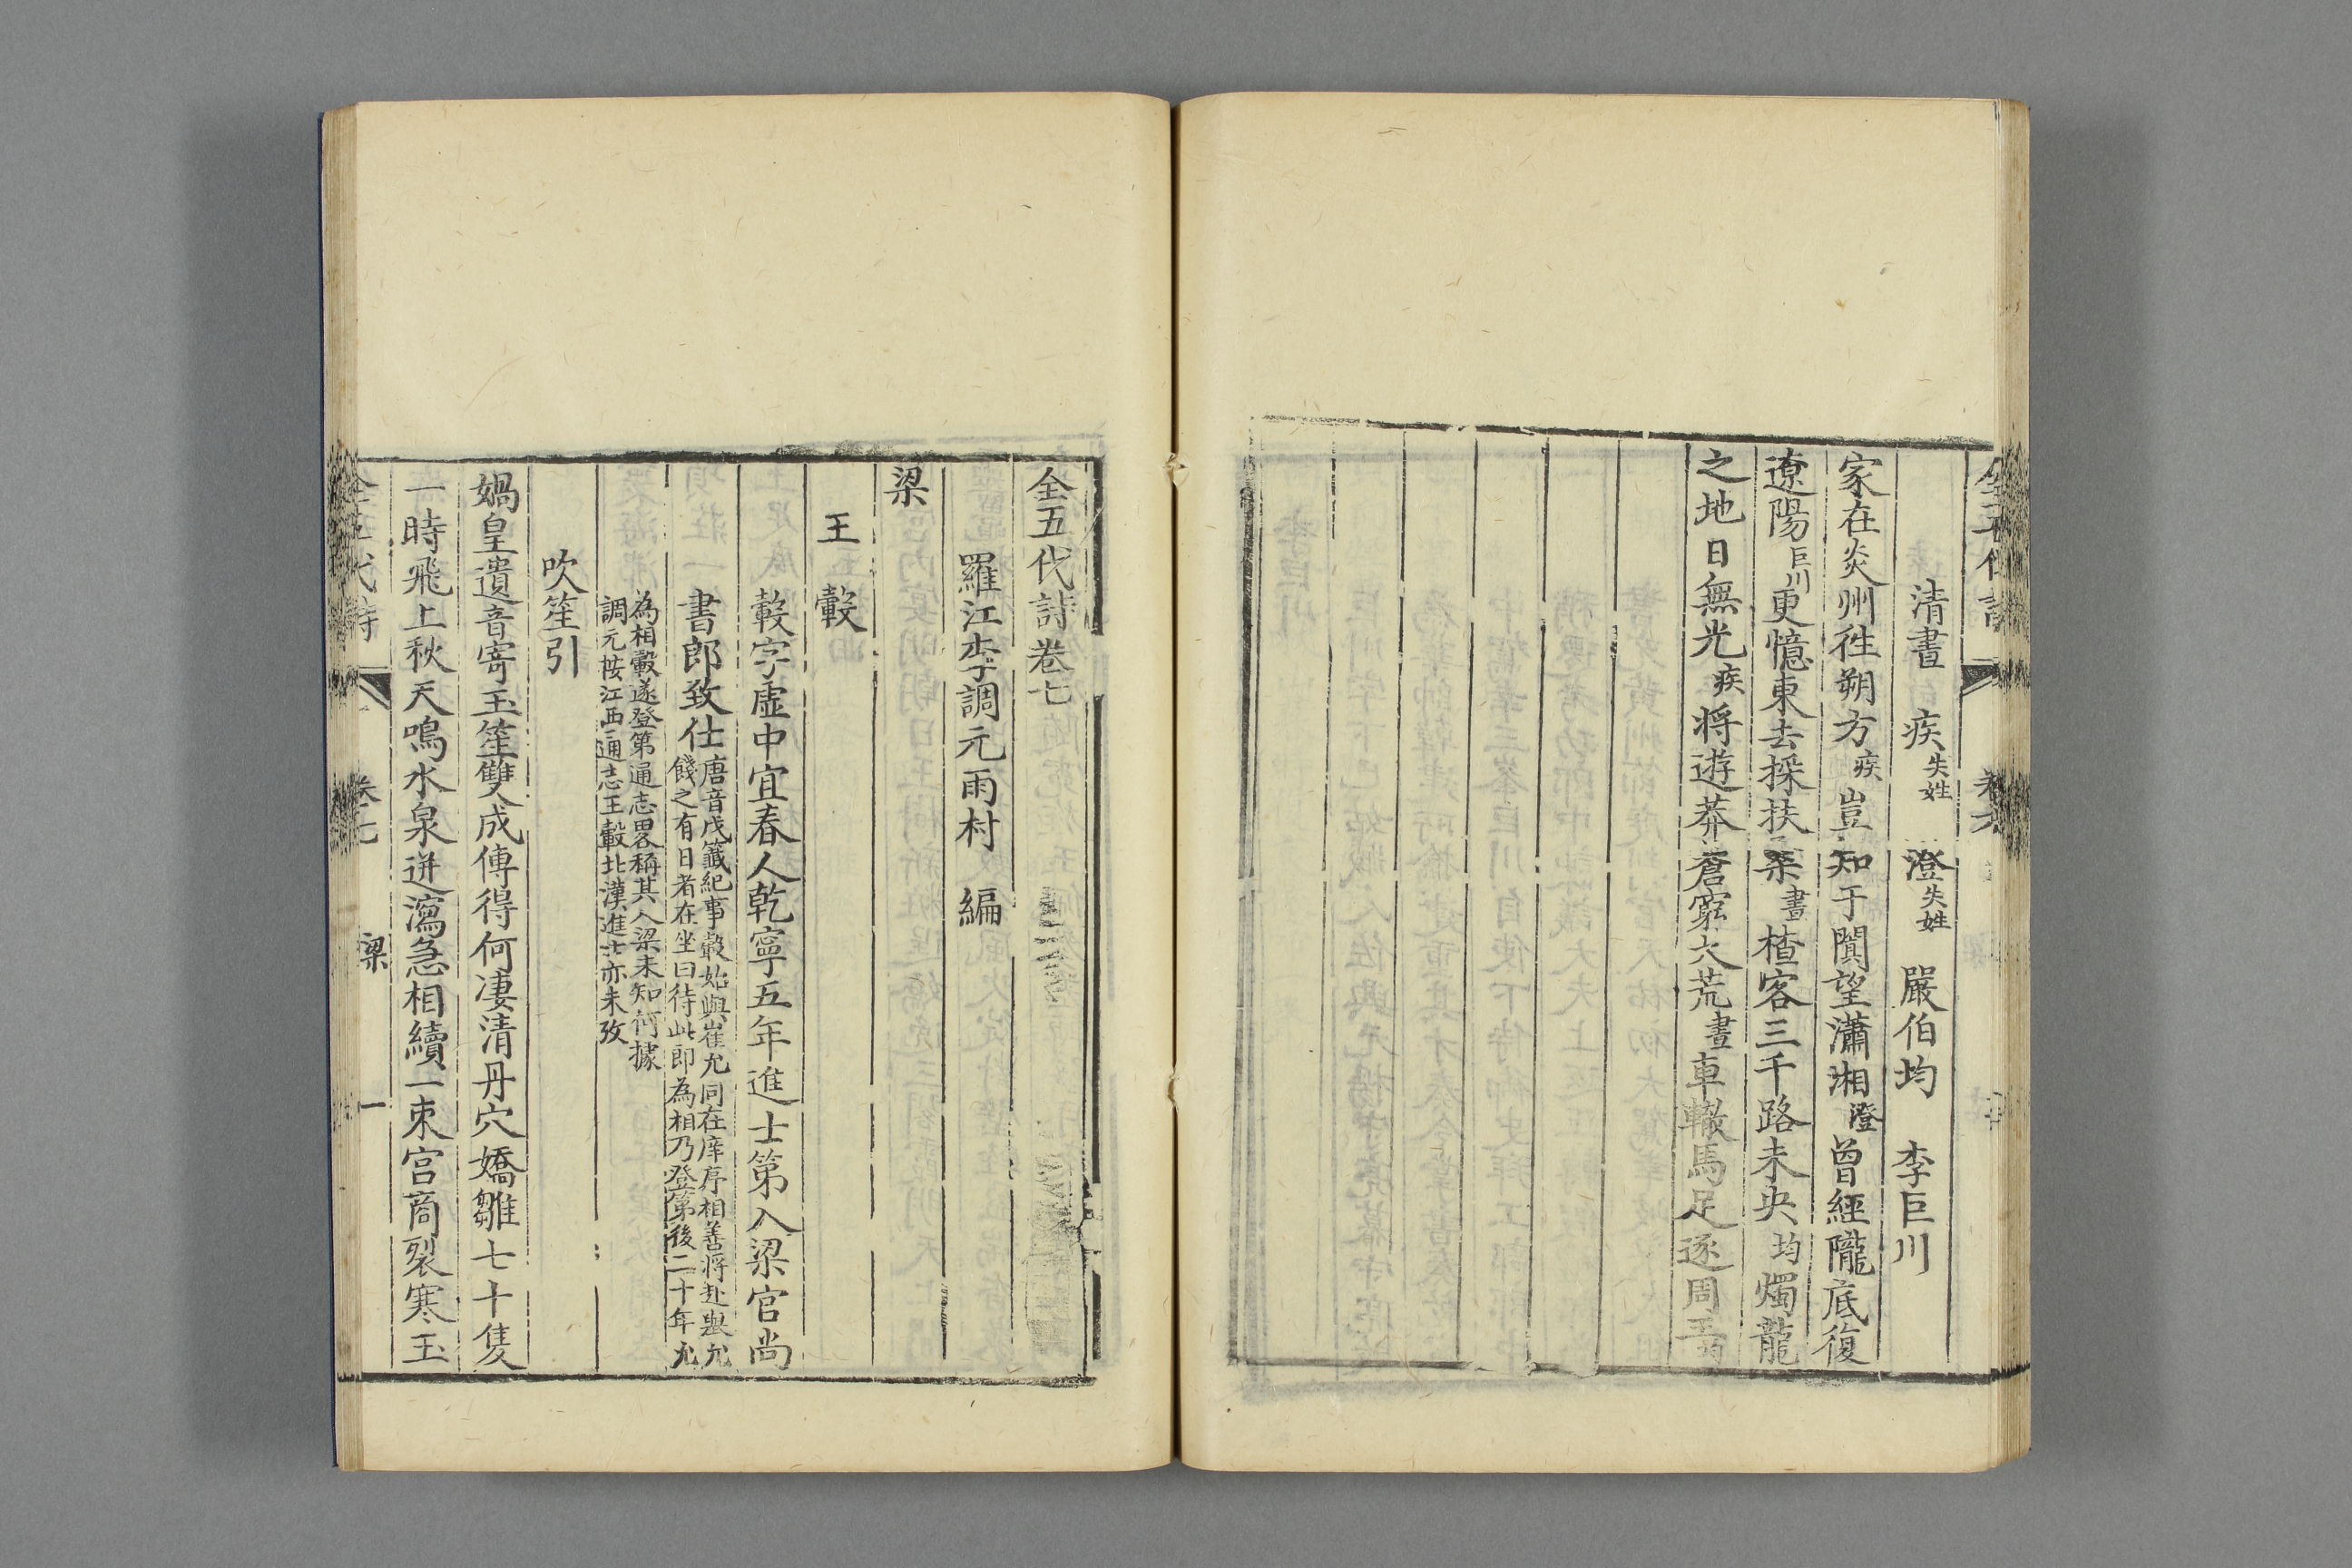 清晝　疾失姓　澄失姓　嚴伯均　李巨川
家在炎州徃朔方疾豈知于闐望瀟湘澄曾經隴底復
遼陽巨川更憶東去採扶桒晝楂客三千路未央均燭龍
之地日無光疾将遊莽蒼窮大荒晝車轍馬足逐周王
全五代詩卷七
羅江李調元雨村　編
梁
王　轂
轂字虛中宜春人乾寧五年進士第入梁官尚
書郎致仕唐音戊籖紀事轂始與崔允同在庠序相善将赴舉允
餞之有日者在坐曰待此郎為相乃登第後二十年允
為相轂遂登第通志畧稱其入梁未知何據
調元桉江西通志王轂北漢進士亦未攷
吹笙引
媧皇遺音寄玉笙雙成傳得何凄清丹穴嬌雛七十隻
一時飛上秋天鳴水泉迸瀉急相續一束宫商裂寒玉
全五代詩　卷七　梁　一